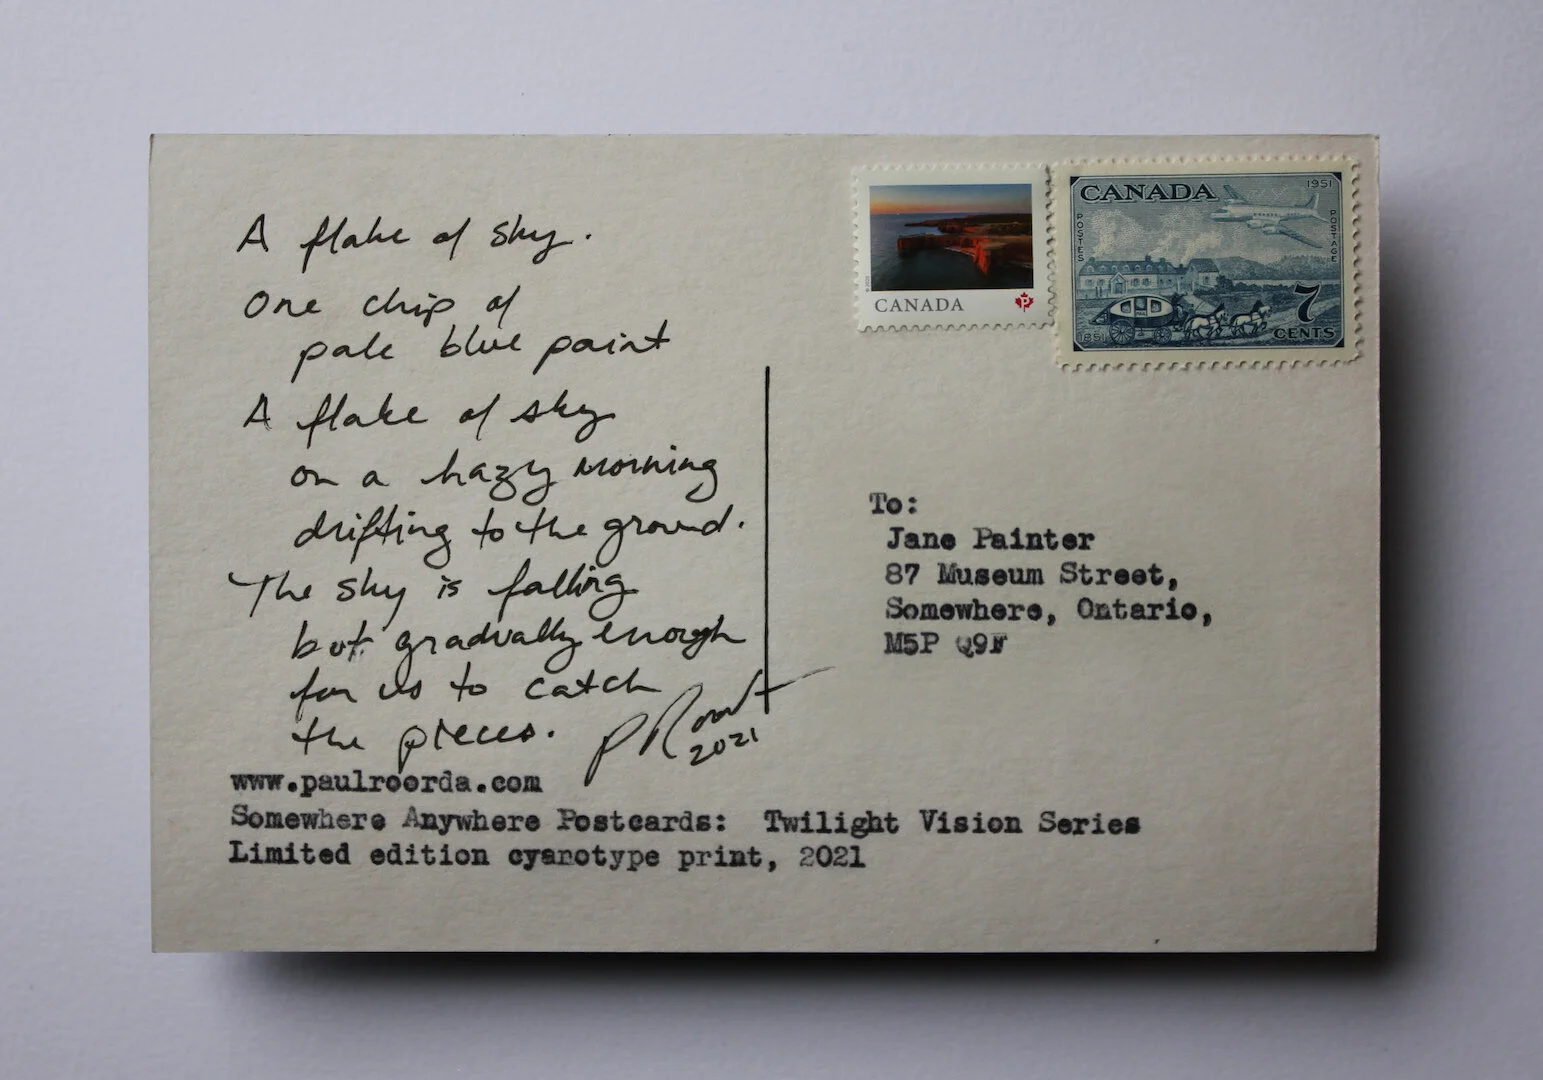 A flake of sky.
One chip of
pale blue paint
A flake of sky
on a hazy morning
drifting to the ground.
The sky is falling
but gradually enough
for us to catch
the pieces.
2021
www.paulroorda.com
Somewhere Anywhere Postcards: Twilight Vision Series
Limited edition cyanotype print, 2021
CANADA
P
CANADA
1951
POSTES
POSTAGE
1851
7
CENTS
To:
Jane Painter
87 Museum Street,
Somewhere, Ontario,
M5P Q9F